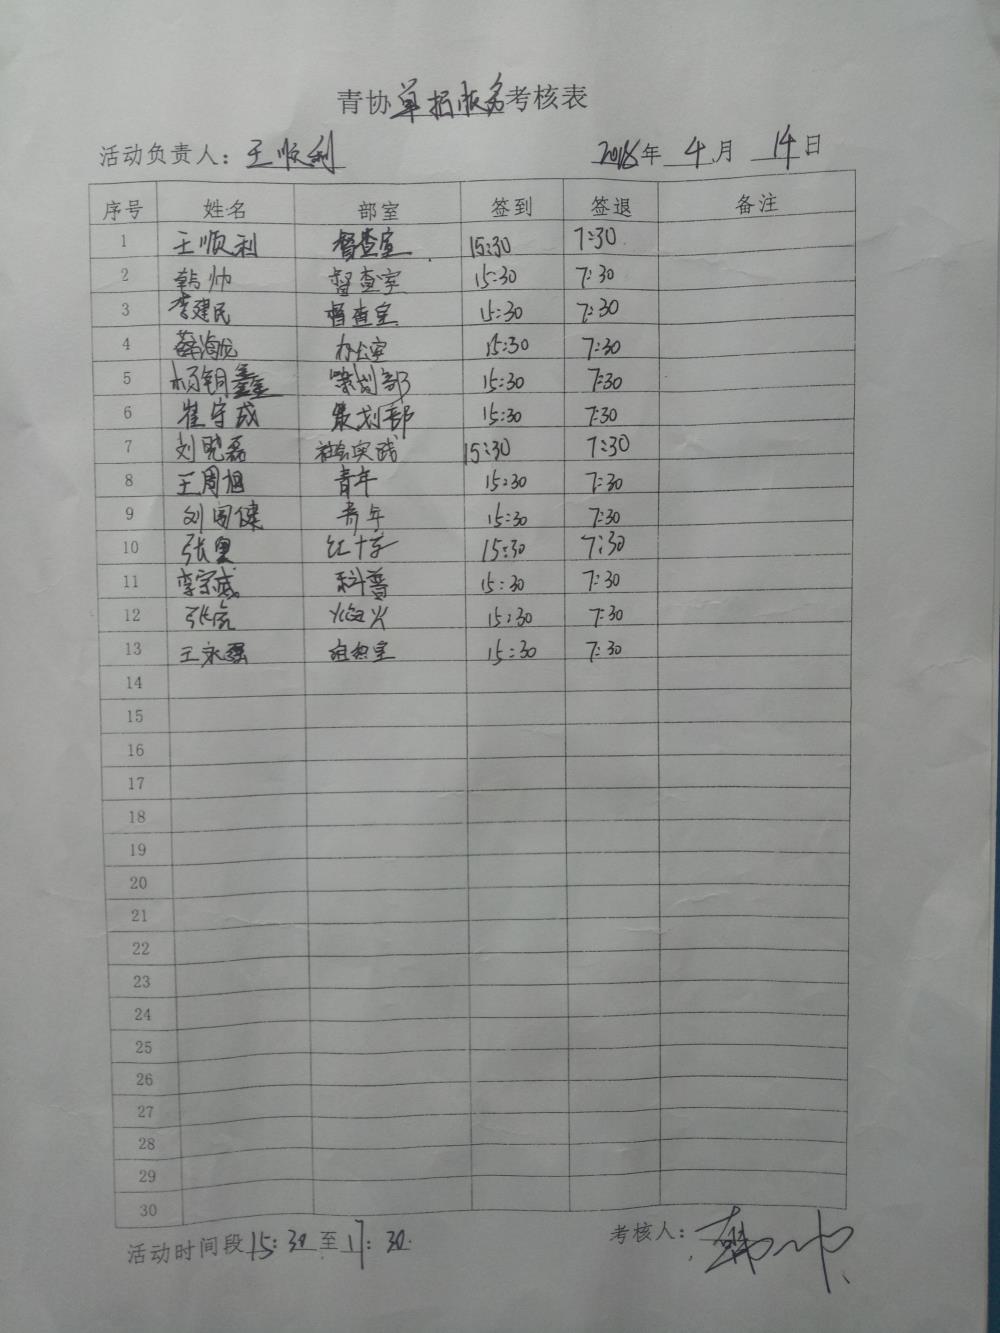 青协单招服务考核表
活动负责人：王顺利 2018年 4月 14日
序号 姓名 部室 签到 签退 备注
1 王顺利 督查室 15:30 7:30
2 韩帅 督查室 15:30 7:30
3 李建民 督查室 15:30 7:30
4 办公室 15:30 7:30
5 杨铜鑫 策划部 15:30 7:30
6 崔守成 策划部 15:30 7:30
7 刘晓磊 社会实践 15:30 7:30
8 王周旭 青年 15:30 7:30
9 刘国健 青年 15:30 7:30
10 张 红十字 15:30 7:30
11 李宗 科普 15:30 7:30
12 张 火 15:30 7:30
13 王永 15:30 7:30
14
15
16
17
18
19
20
21
22
23
24
25
26
27
28
29
30
活动时间段15:30至17:30. 考核人：韩帅